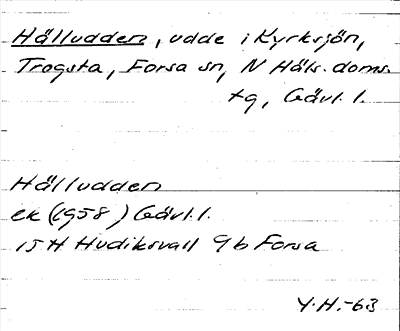 Hälludden, udde i Kyrksjön,
Trogsta, Forsa sn, N Häls. doms.
tg, Gävl. l.
Hälludden
ek (1958) Gävl. l.
15H Hudiksvall 9b Forsa
Y.H.-63